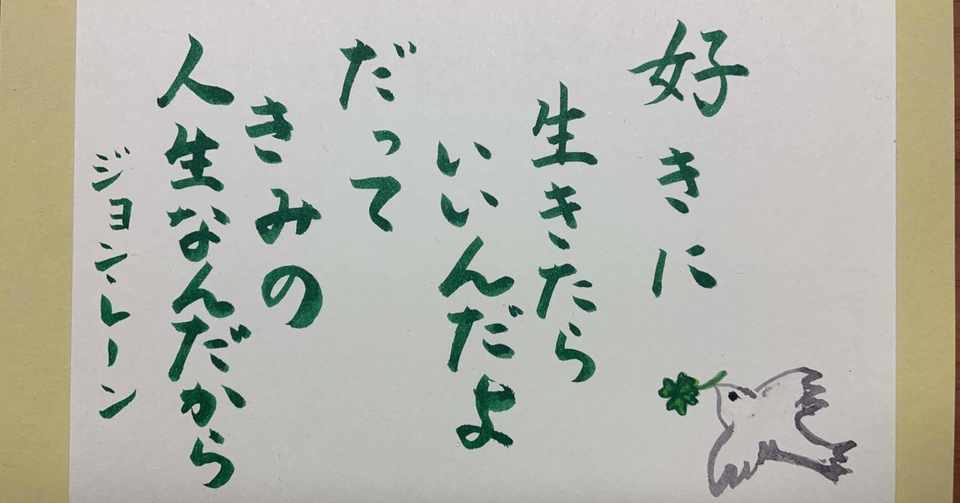 好きに
生きたら
いいんだよ
だって
きみの
人生なんだから
ジョン・レーン